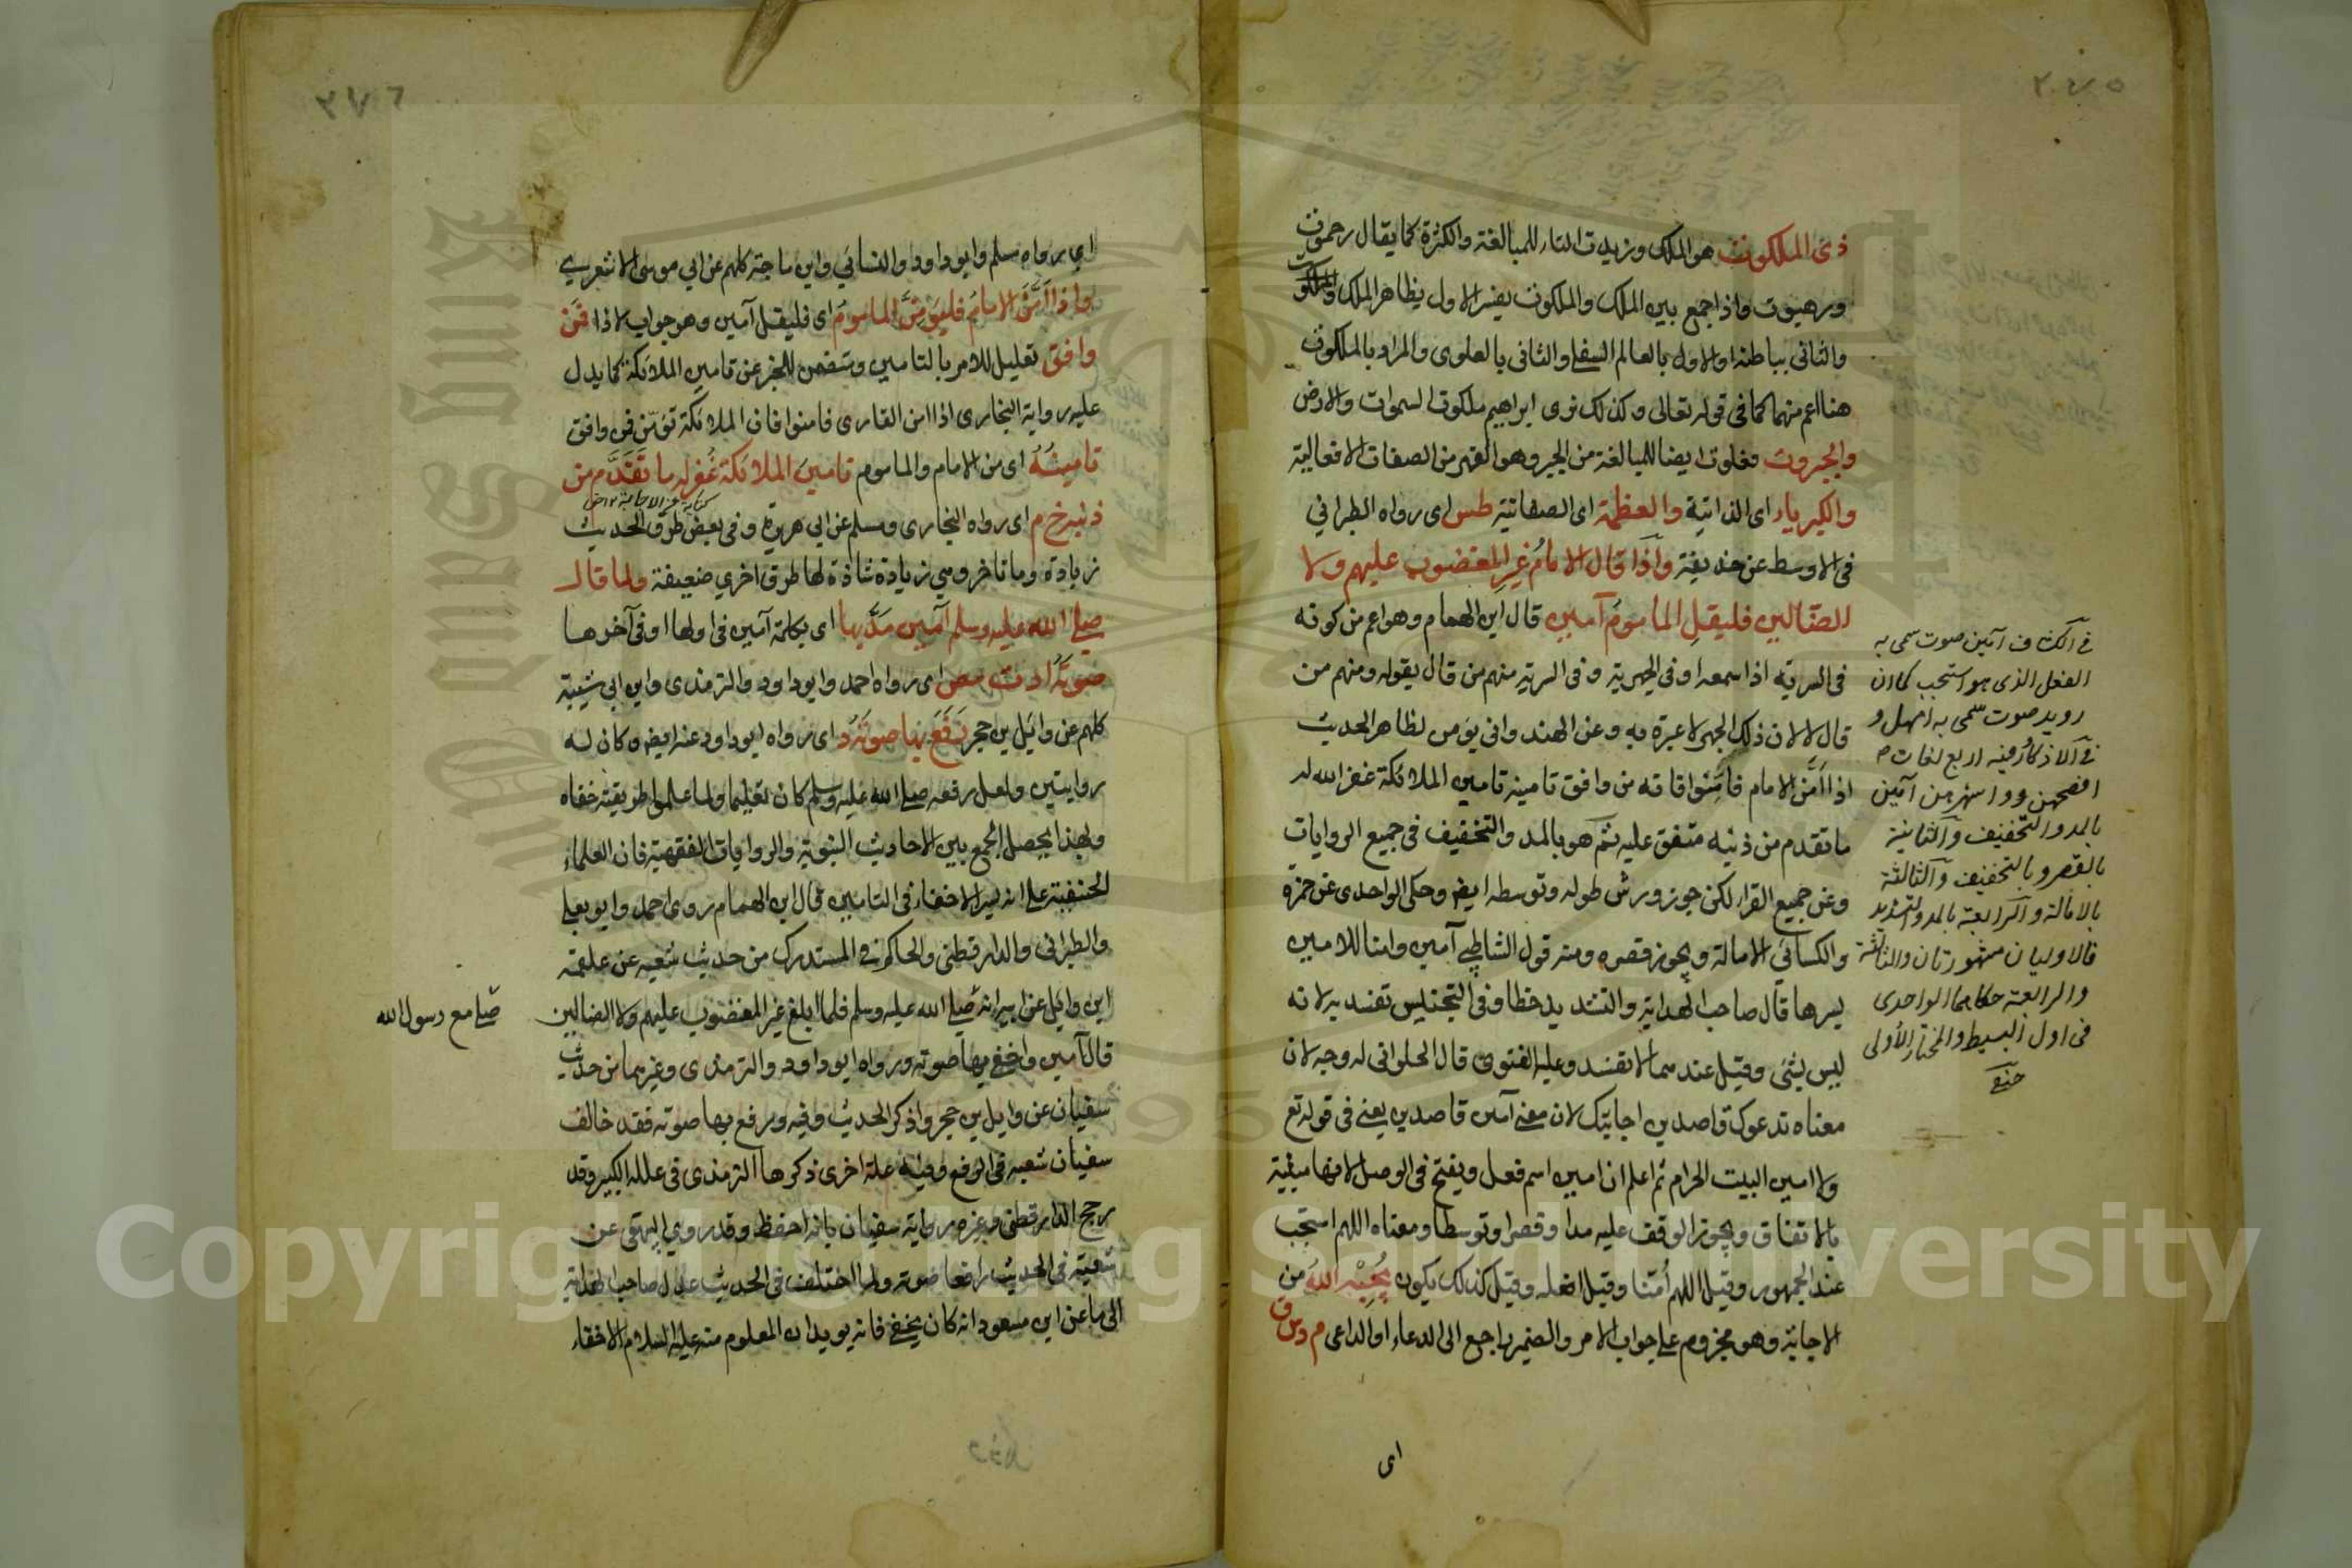 ٢٧٥
ذى الملكوت هو الملك وزيدت التاء للمبالغة والكثرة كما يقال رحموت
ورهبوت واذا جمع بين الملك والملكوت يفسر الاول بظاهر الملك والملكوت
والثانى بباطنه او الاول بالعالم السفلى والثانى بالعلوى والمراد بالملكوت
هنا اعم منهما كما فى قوله تعالى وكذلك نرى ابراهيم ملكوت السموات والارض
والجبروت فعلوت ايضا للمبالغة من الجبر وهو القهر من الصفات الافعالية
والكبرياء اى الذاتية والعظمة اى الصفاتية طس اى رواه الطبرانى
فى الاوسط عن حذيفة واذا قال الامام غير المغضوب عليهم ولا
الضالين فليقل الماموم آمين قال ابن الهمام وهو اعم من كونه
فى السرية اذا سمعه او فى الجهرية وفى السرية منهم من قال يقوله ومنهم من
قال لا لان ذلك الجهر لا عبرة به وعن الهندوانى يؤمن لظاهر الحديث
اذا أمّن الامام فامّنوا فانه من وافق تامينه تامين الملائكة غفر الله له
ما تقدم من ذنبه متفق عليه ثم هو بالمد والتخفيف فى جميع الروايات
وعن جميع القراء لكن جوز ورش طوله وتوسطه ايضا وحكى الواحدى عن حمزة
والكسائى الامالة ويجوز قصره ومنه قول الشاطبى آمين وامنا للامين
بسرها قال صاحب الهداية والتشديد خطأ وفى التجنيس تفسد به لانه
ليس بشئ وقيل عندهما لا تفسد وعليه الفتوى قال الحلوانى له وجه لان
معناه ندعوك قاصدين اجابتك لان معنى آمين قاصدين يعنى فى قوله تع
ولا امين البيت الحرام ثم اعلم ان امين اسم فعل ويفتح فى الوصل لانها مبنية
بالاتفاق ويجوز الوقف عليه مدا وقصرا وتوسطا ومعناه اللهم استجب
عند الجمهور وقيل اللهم أمّنا وقيل افعله وقيل كذلك يكون يُجبْه اللهُ من
الاجابة وهو مجزوم على جواب الامر والضمير راجع الى الدعاء او الداعى م د س ق
اى
فى الكشاف آمين صوت سمى به
الفعل الذى هو استجب كما ان
رويد صوت سمى به امهل و
فى الاذكار فيه اربع لغات
افصحهن واشهرهن آمين
بالمد والتخفيف والثانية
بالقصر وبالتخفيف والثالثة
بالامالة والرابعة بالمد والتشديد
فالاوليان مشهورتان والثالثة
والرابعة حكاهما الواحدى
فى اول البسيط والمختار الأولى
٢٧٦
اى رواه مسلم وابو داود والنسائى وابن ماجة كلهم عن ابى موسى الاشعرى
واذا أمّن الامام فليؤمّن الماموم اى فليقل آمين وهو جواب لاذا فمن
وافق تعليل للامر بالتامين وتضمن للخبر عن تامين الملائكة كما يدل
عليه رواية البخارى اذا امن القارى فامنوا فان الملائكة تؤمّن فمن وافق
تامينُه اى من الامام والماموم تامينَ الملائكة غُفِر له ما تقدّم من
ذنبه خ م اى رواه البخارى ومسلم عن ابى هريرة وفى بعض طرق الحديث
زيادة وما تاخر وهى زيادة شاذة لها طرق اخرى ضعيفة ولما قال
صلى الله عليه وسلم آمين مدّ بها اى بكلمة آمين فى اولها او فى آخرها
صوتَه أ د ت مص اى رواه احمد وابو داود والترمذى وابن ابى شيبة
كلهم عن وائل بن حجر رَفَع بها صوتَه د اى رواه ابو داود عنه ايضا وكان له
روايتين ولعل رفعه صلى الله عليه وسلم كان تعليما ولما علموا طريقته خفاه
وبهذا يحصل الجمع بين الاحاديث النبوية والروايات الفقهية فان العلماء
الحنفية على انه يسن الاخفاء فى التامين قال ابن الهمام روى احمد وابو يعلى
والطبرانى والدارقطنى والحاكم فى المستدرك من حديث شعبه عن علقمة
ابن وايل عن ابيه انه صلى الله عليه وسلم فلما بلغ غير المغضوب عليهم ولا الضالين
قال آمين واخفى بها صوته ورواه ابو داود والترمذى وغيرهما من حديث
سفيان عن وايل بن حجر واذكر الحديث وفيه ورفع بها صوته فقد خالف
سفيان شعبه فى الرفع وفيه علة اخرى ذكرها الترمذى فى علله الكبير وقد
رجح الدارقطنى وغيره رواية سفيان بانه احفظ وقد روى البيهقى عن
شعبة فى الحديث رافعا صوته ولما اختلف فى الحديث عدل صاحب الهداية
الى ما عن ابن مسعود انه كان يخفى فانه يؤيد ان المعلوم منه عليه السلام الاخفاء
صلى مع رسول الله
Copyright © King Saud University
King Saud University
1957